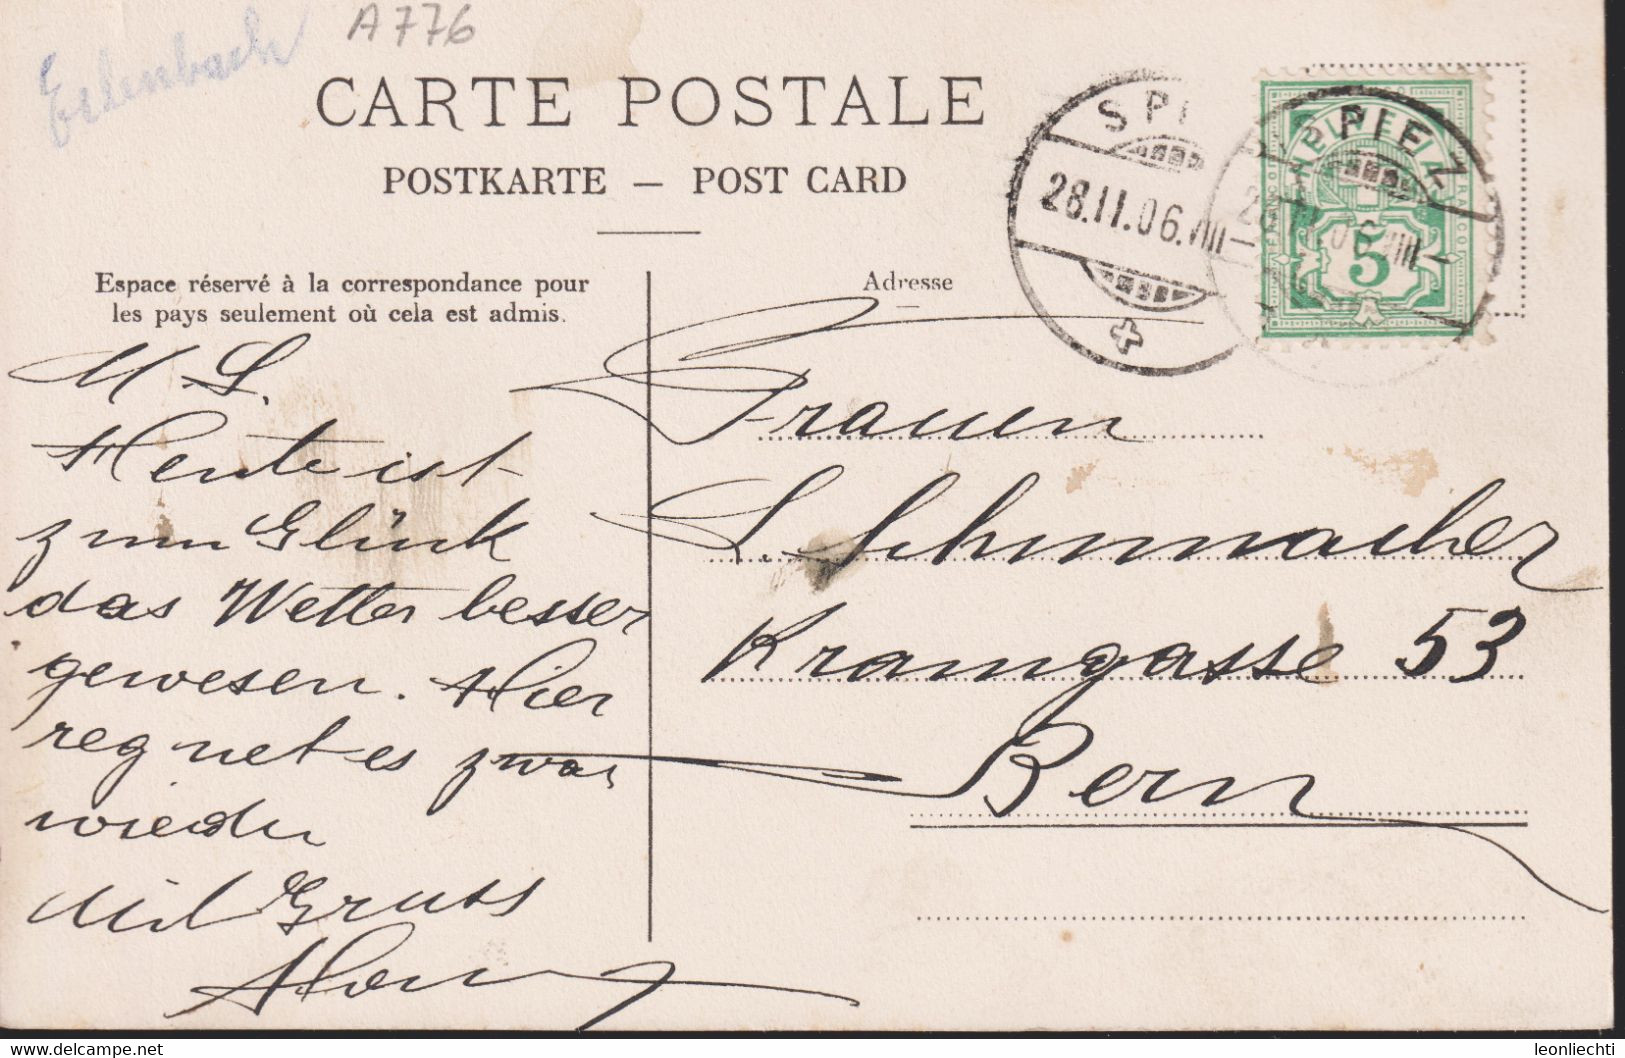 Erlenbach
A776
CARTE POSTALE
POSTKARTE – POST CARD
Espace réservé à la correspondance pour
les pays seulement où cela est admis.
Adresse
SPI
28.II.06.VIII–
SPIEZ
28.II.06.VIII–
HELVETIA
FRANCO
FRANCO
5
M. L.
Heute ist
zum Glück
das Wetter besser
gewesen. Hier
regnet es zwar
wieder
Mit Gruss
Frauen
L. Schumacher
Kramgasse 53
Bern
leonliechti